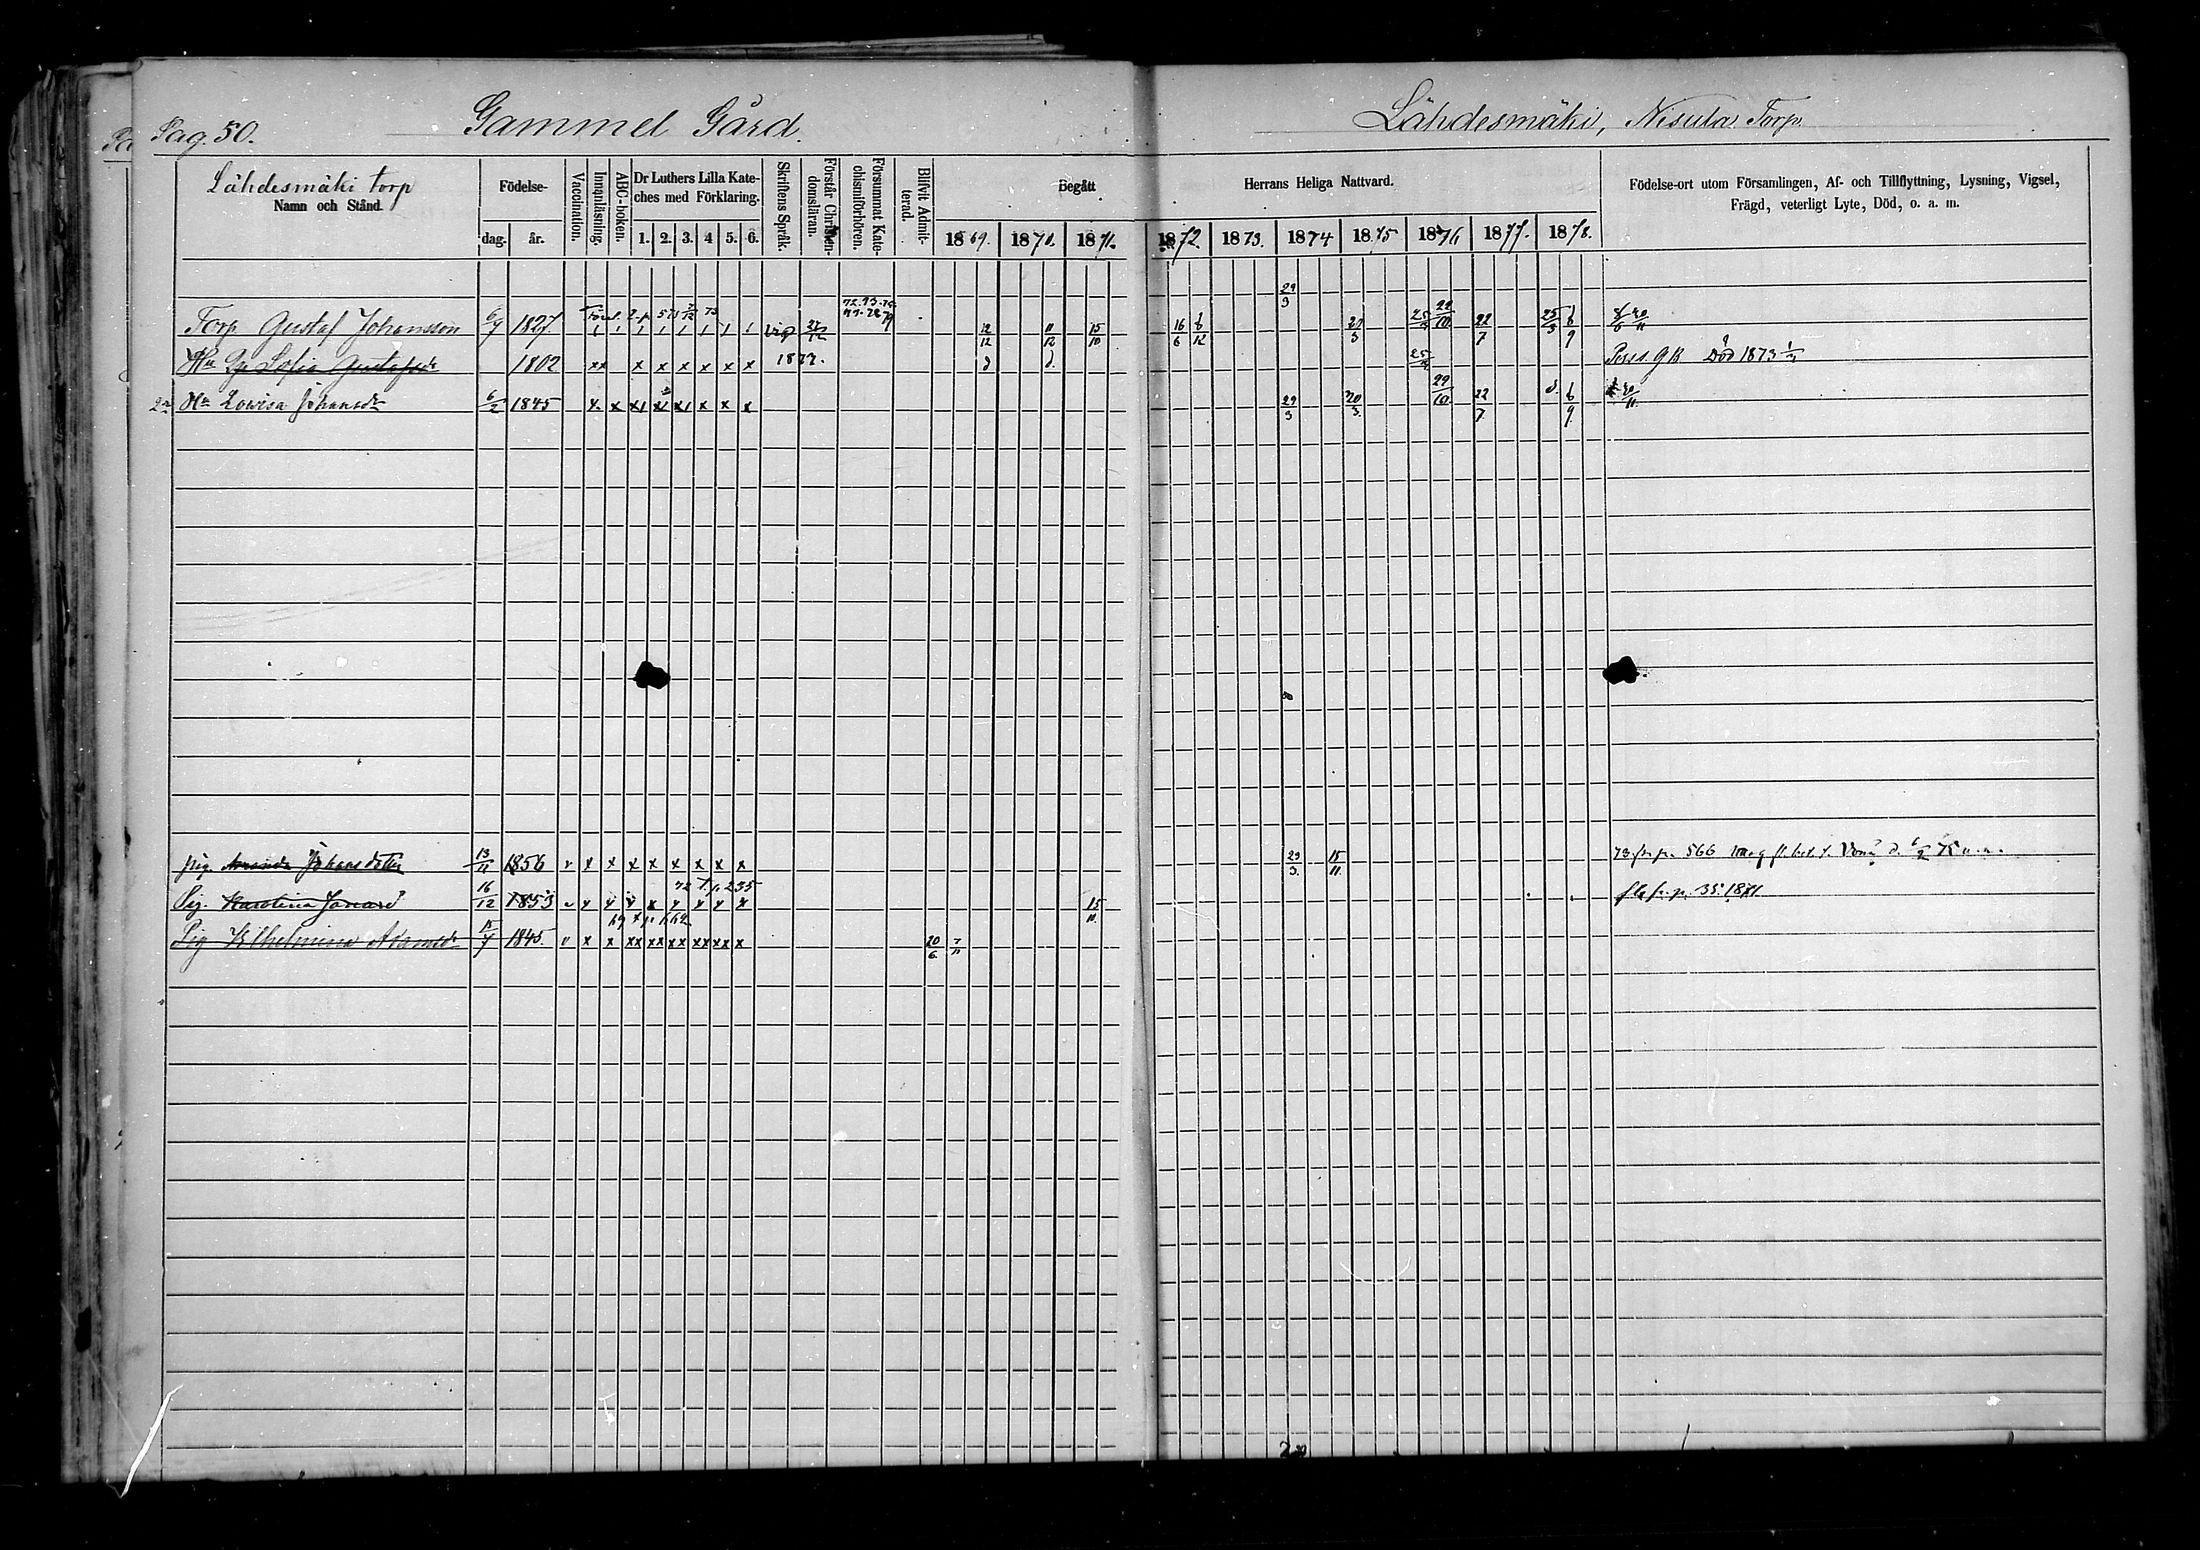 Pag. 50. Gammel Gård Lähdesmäki, Nisula Torp.
Lähdesmäki torp
Namn och Stånd.
Födelse-
dag. år.
Vaccination.
Innanläsning.
ABC-boken.
Dr Luthers Lilla Kate-
ches med Förklaring.
1. 2. 3. 4 5. 6.
Skriftens Språk.
Förstår Christen-
domsläran.
Försummat Kate-
chismiförhören.
Blifvit Admit-
terad.
Begått Herrans Heliga Nattvard.
1869. 1870. 1871. 1872. 1873. 1874 1875 1876 1877. 1878.
Födelse-ort utom Församlingen, Af- och Tillflyttning, Lysning, Vigsel,
Frägd, veterligt Lyte, Död, o. a. m.
Torp Gustaf Johansson 6/7 1827 vigd 12/12 11/12 15/10 16/6 6/12 29/3 21/3 29/10 22/7 25/3 6/9
Hu Sofia Gustafsdr 1802 x x x x x x 1873. d d. Död 1873
2 Hu Lowisa Johansdr 6/2 1845 x x x x x x 29/3 20/3. 29/10 22/7 d. 6/9
pig. Amanda Johansdotter 13/11 1856 v x x x x x x x x 29/3. 15/11. 73 fr. p. 566
Pig. Karolina 16/12 1853 72 t. p. 235 15/10. fr. p. 35. 1871
Pig Wilhelmina Adamsdr 15/7 1845. 69 t. p. 662 v x x xx xx xx xx xx x 20/6. 7/11